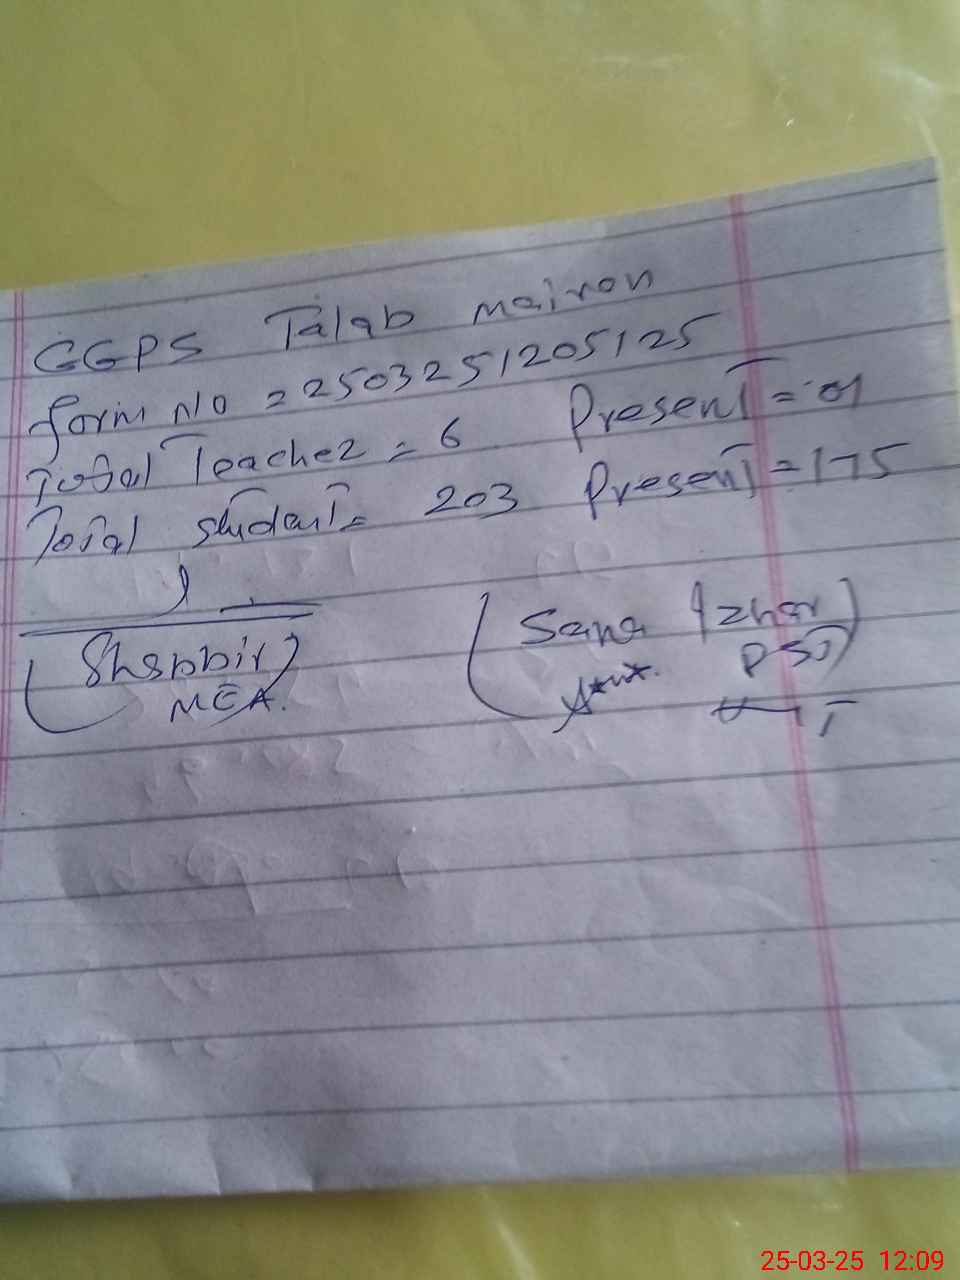 GGPS Talab mairon
form No = 2503251205125
Total Teacher = 6 Present = 01
Total student = 203 Present = 175
(Shabbir)
MEA.
(Sana Izhar)
PST
25-03-25 12:09